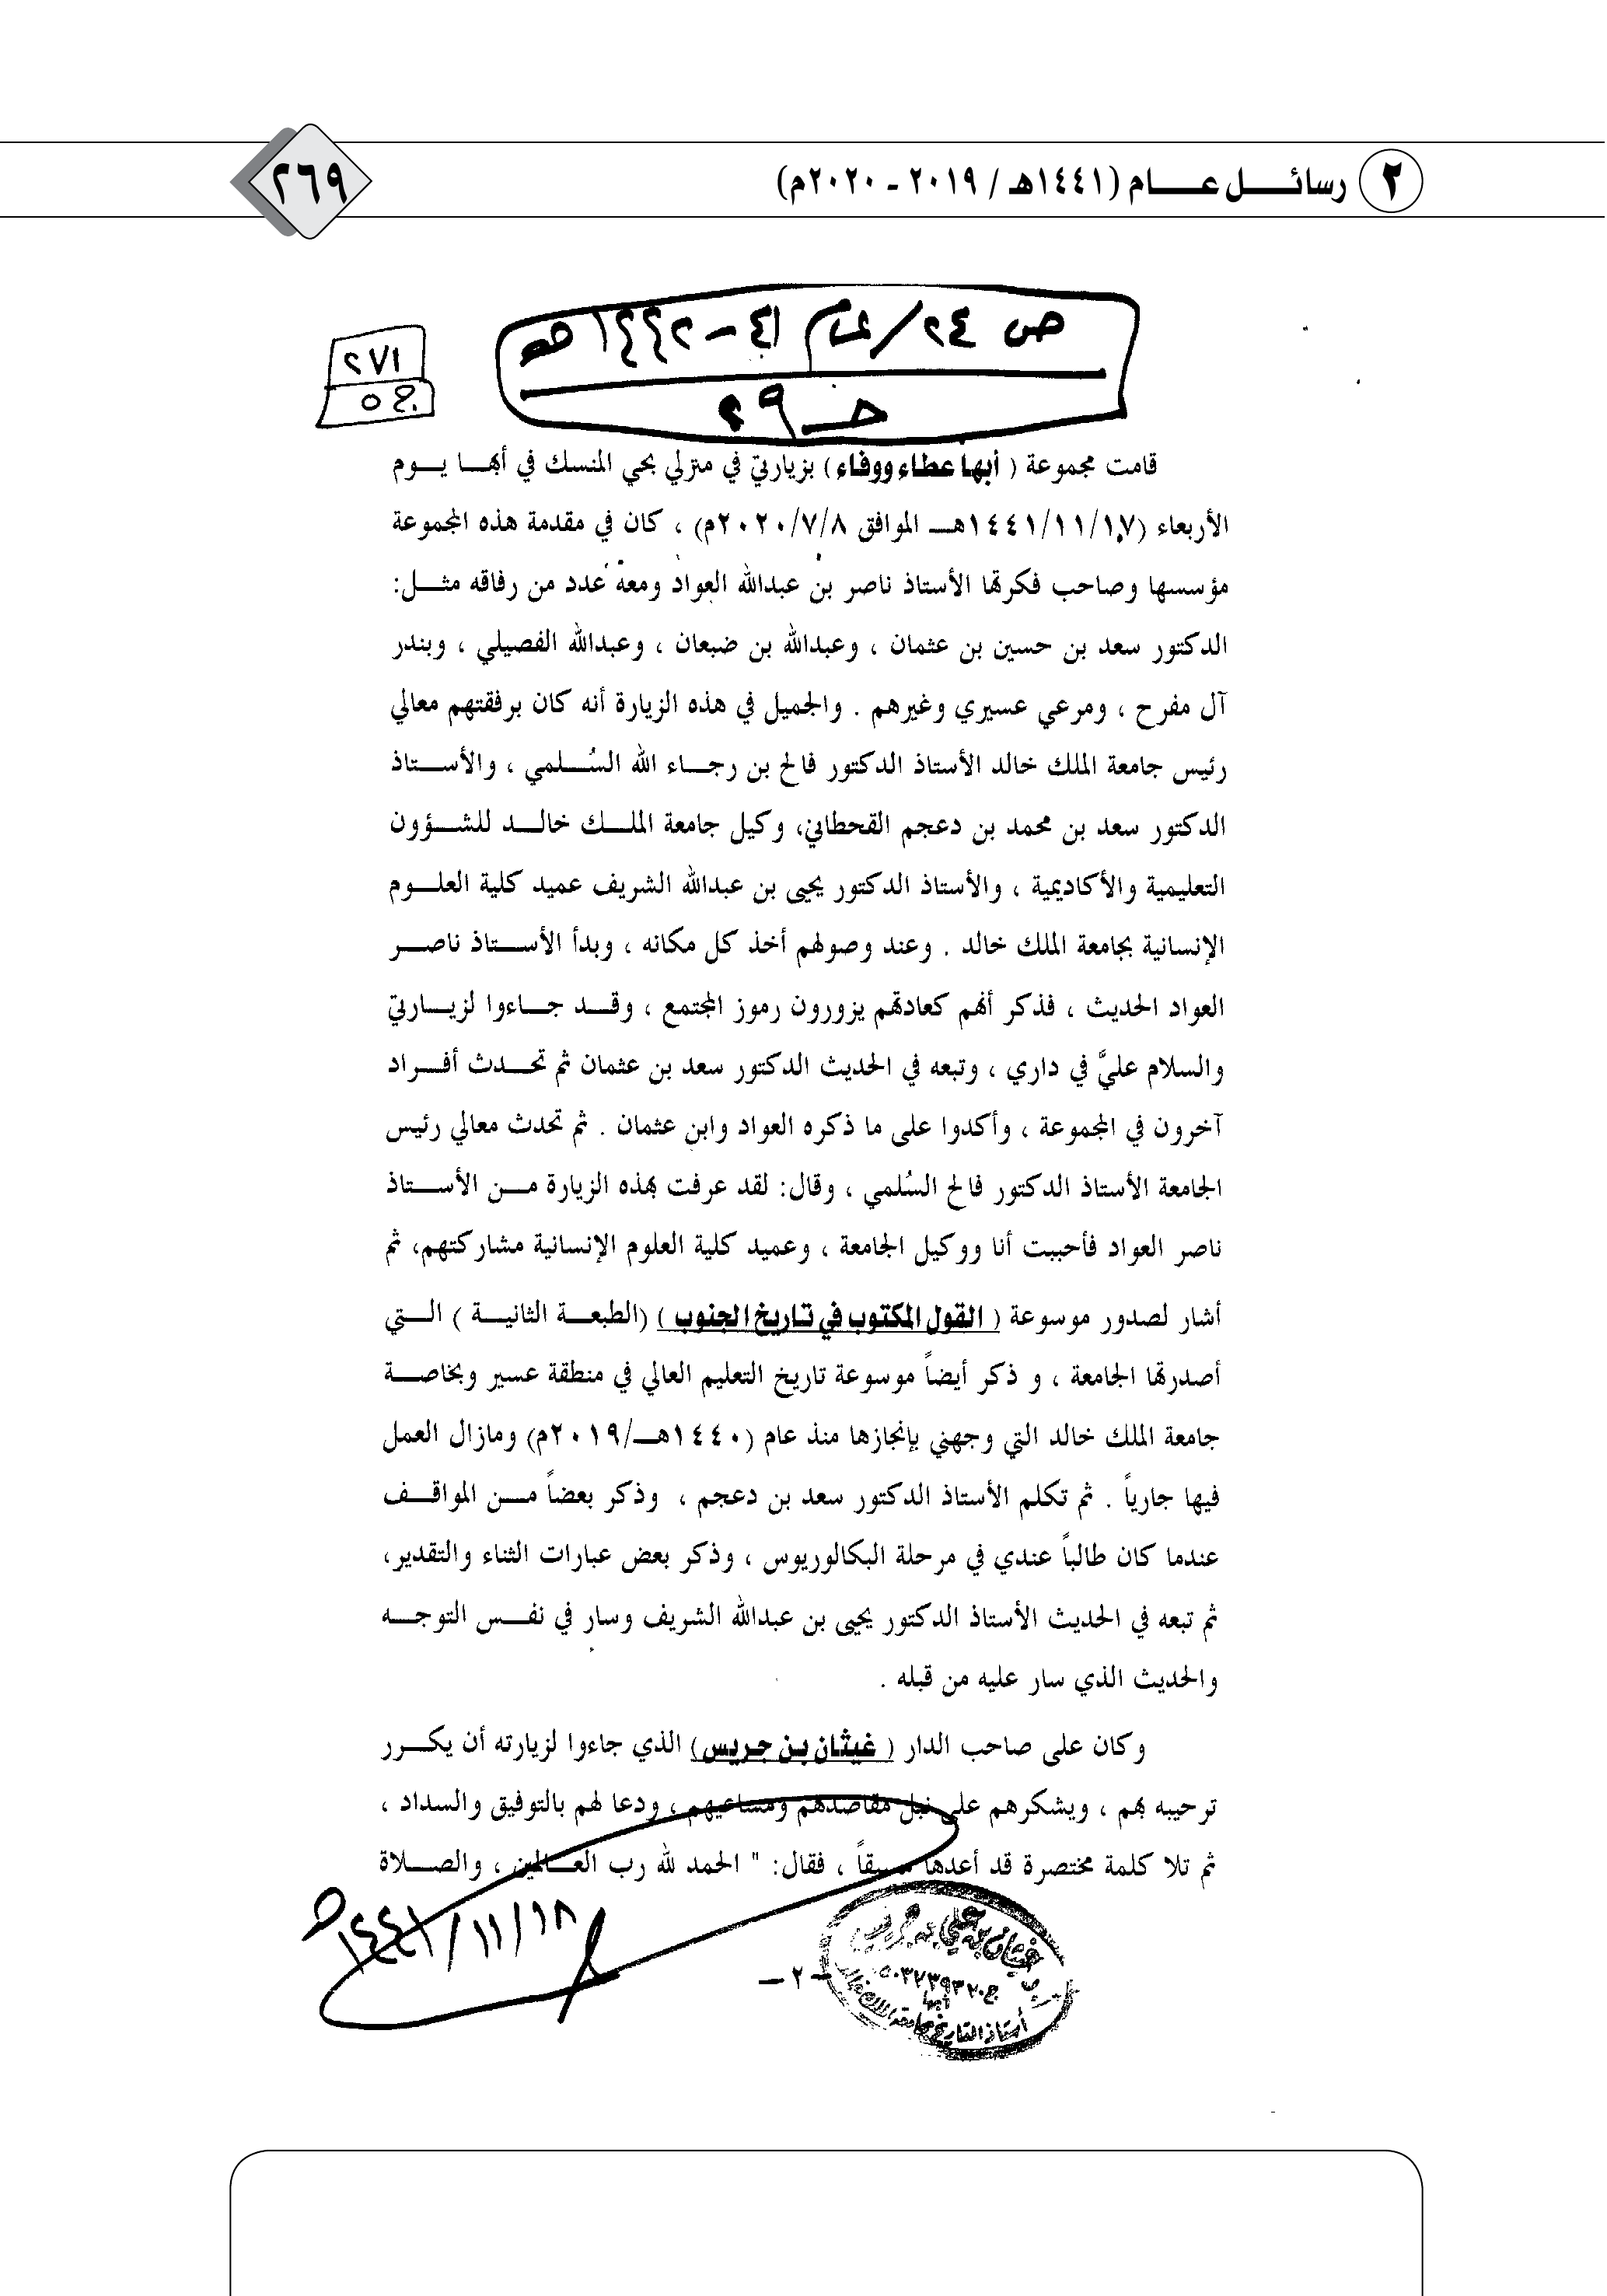 ٢ رسائل عام (١٤٤١هـ / ٢٠١٩ - ٢٠٢٠م)
٢٦٩
ص ٢٤ / عام ٤١ - ١٤٤٢هـ
٢٧١
جـ ٢٩
جـ ٥
قامت مجموعة ( أبها عطاء ووفاء ) بزيارتي في منزلي بحي المنسك في أبها يوم
الأربعاء (١٤٤١/١١/١٧هـ الموافق ٢٠٢٠/٧/٨م) ، كان في مقدمة هذه المجموعة
مؤسسها وصاحب فكرتها الأستاذ ناصر بن عبدالله العواد ومعه عدد من رفاقه مثل:
الدكتور سعد بن حسين بن عثمان ، وعبدالله بن ضبعان ، وعبدالله الفصيلي ، وبندر
آل مفرح ، ومرعي عسيري وغيرهم . والجميل في هذه الزيارة أنه كان برفقتهم معالي
رئيس جامعة الملك خالد الأستاذ الدكتور فالح بن رجاء الله السُلمي ، والأستاذ
الدكتور سعد بن محمد بن دعجم القحطاني، وكيل جامعة الملك خالد للشؤون
التعليمية والأكاديمية ، والأستاذ الدكتور يحيى بن عبدالله الشريف عميد كلية العلوم
الإنسانية بجامعة الملك خالد . وعند وصولهم أخذ كل مكانه ، وبدأ الأستاذ ناصر
العواد الحديث ، فذكر أنهم كعادتهم يزورون رموز المجتمع ، وقد جاءوا لزيارتي
والسلام عليَّ في داري ، وتبعه في الحديث الدكتور سعد بن عثمان ثم تحدث أفراد
آخرون في المجموعة ، وأكدوا على ما ذكره العواد وابن عثمان . ثم تحدث معالي رئيس
الجامعة الأستاذ الدكتور فالح السُلمي ، وقال: لقد عرفت بهذه الزيارة من الأستاذ
ناصر العواد فأحببت أنا ووكيل الجامعة ، وعميد كلية العلوم الإنسانية مشاركتهم، ثم
أشار لصدور موسوعة ( القول المكتوب في تاريخ الجنوب ) (الطبعة الثانية ) التي
أصدرتها الجامعة ، و ذكر أيضاً موسوعة تاريخ التعليم العالي في منطقة عسير وبخاصة
جامعة الملك خالد التي وجهني بإنجازها منذ عام (١٤٤٠هـ/٢٠١٩م) ومازال العمل
فيها جارياً . ثم تكلم الأستاذ الدكتور سعد بن دعجم ، وذكر بعضاً من المواقف
عندما كان طالباً عندي في مرحلة البكالوريوس ، وذكر بعض عبارات الثناء والتقدير،
ثم تبعه في الحديث الأستاذ الدكتور يحيى بن عبدالله الشريف وسار في نفس التوجه
والحديث الذي سار عليه من قبله .
وكان على صاحب الدار ( غيثان بن جريس) الذي جاءوا لزيارته أن يكرر
ترحيبه بهم ، ويشكرهم على نبل مقاصدهم ومساعيهم ، ودعا لهم بالتوفيق والسداد ،
ثم تلا كلمة مختصرة قد أعدها مسبقاً ، فقال: " الحمد لله رب العالمين ، والصلاة
١٤٤١/١١/١٨هـ
غيثان بن علي بن جريس
أبها
أستاذ التاريخ بجامعة الملك خالد
- ٢ -